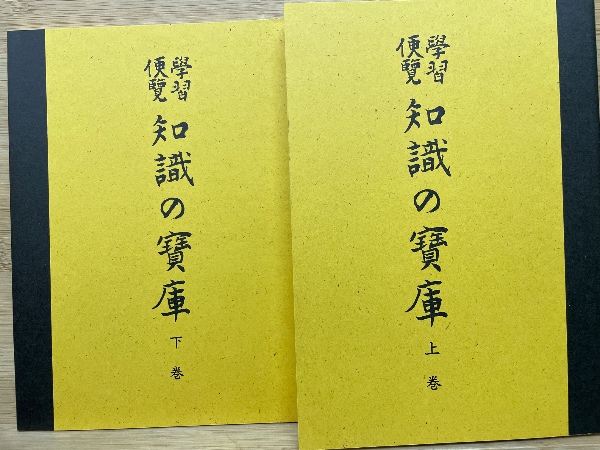 學習
便覽
知識の寶庫
上巻
學習
便覽
知識の寶庫
下巻